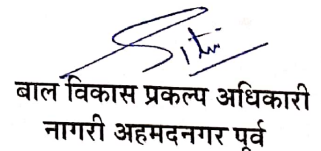 बाल विकास प्रकल्प अधिकारी
नागरी अहमदनगर पूर्व